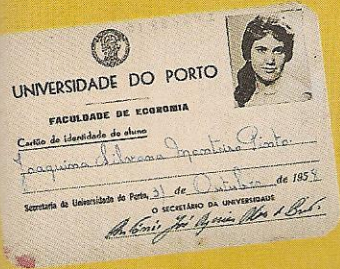 UNIVERSIDADE DO PORTO
FACULDADE DE ECONOMIA
Cartão de identidade de aluno
Joaquina Silvana Monteiro Pinto
Secretaria da Universidade do Porto, 31 de Outubro de 1958
O SECRETÁRIO DA UNIVERSIDADE
António José